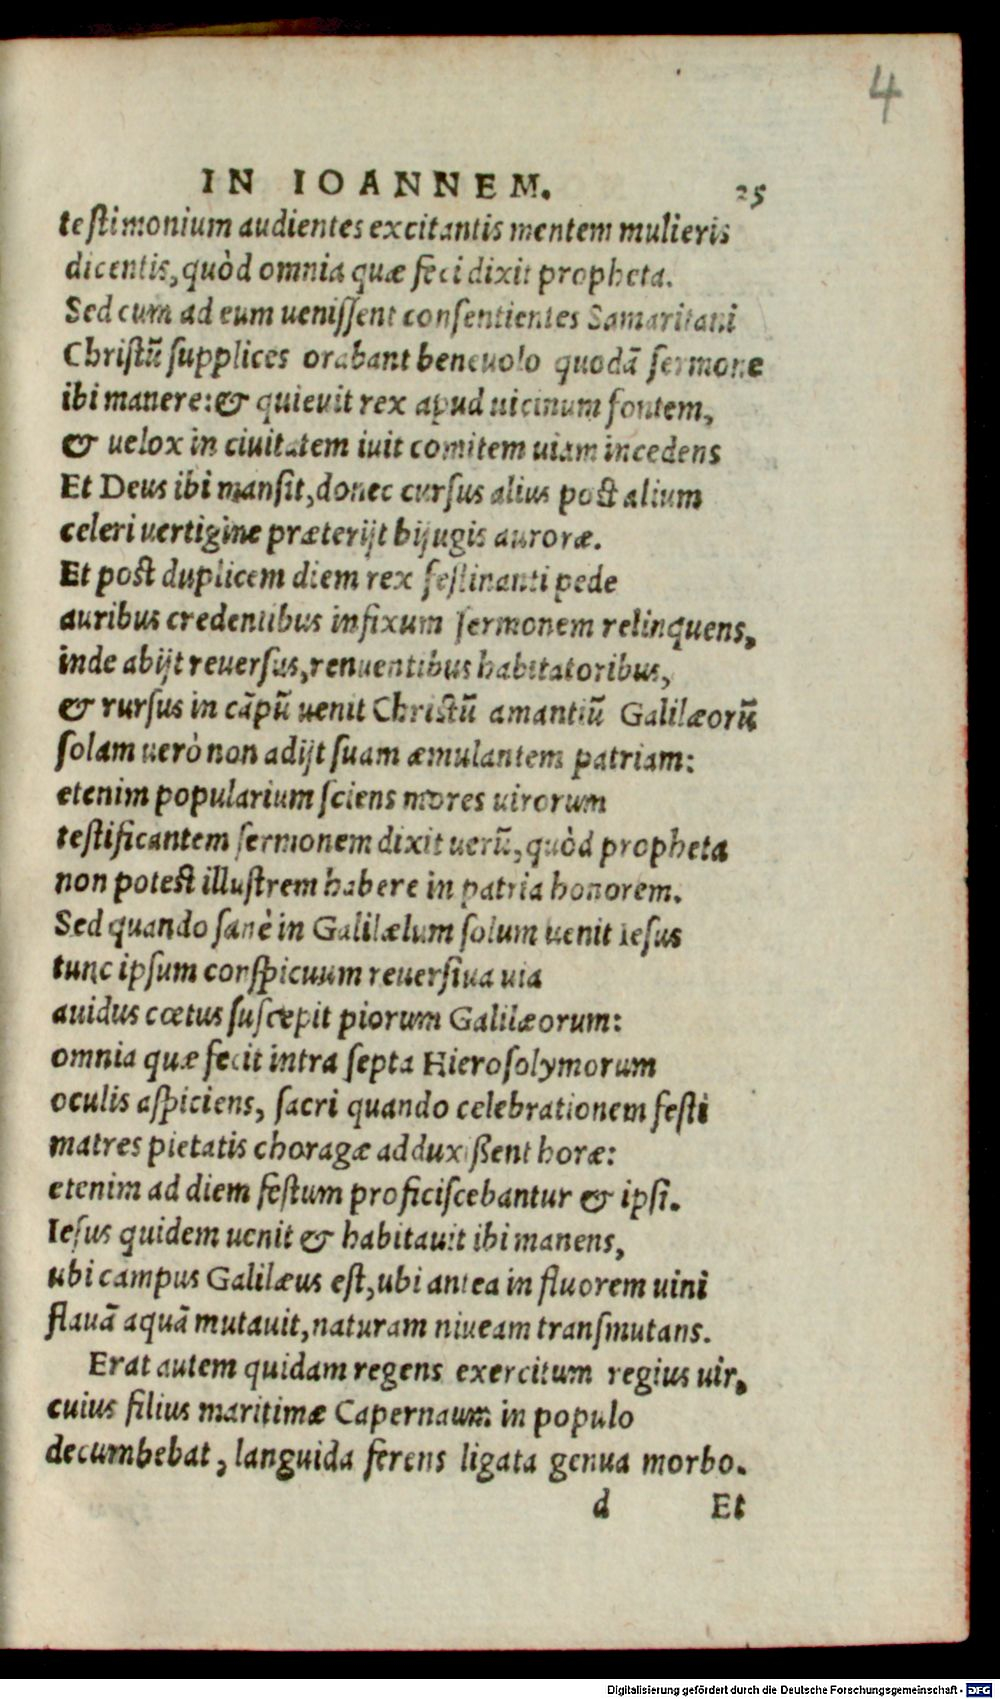 4
IN IOANNEM. 25
testimonium audientes excitantis mentem mulieris
dicentis, quòd omnia quæ feci dixit propheta.
Sed cum ad eum uenissent consentientes Samaritani
Christū supplices orabant beneuolo quodā sermone
ibi manere: & quieuit rex apud uicinum fontem,
& uelox in ciuitatem iuit comitem uiam incedens
Et Deus ibi mansit, donec cursus alius post alium
celeri uertigine præterijt bijugis auroræ.
Et post duplicem diem rex festinanti pede
auribus credentibus infixum sermonem relinquens,
inde abijt reuersus, renuentibus habitatoribus,
& rursus in cāpū uenit Christū amantiū Galilæorū
solam uerò non adijt suam æmulantem patriam:
etenim popularium sciens mores uirorum
testificantem sermonem dixit uerū, quòd propheta
non potest illustrem habere in patria honorem.
Sed quando sanè in Galilælum solum uenit Iesus
tunc ipsum conspicuum reuersiua uia
auidus cœtus suscepit piorum Galilæorum:
omnia quæ fecit intra septa Hierosolymorum
oculis aspiciens, sacri quando celebrationem festi
matres pietatis choragæ adduxißent horæ:
etenim ad diem festum proficiscebantur & ipsi.
Iesus quidem uenit & habitauit ibi manens,
ubi campus Galilæus est, ubi antea in fluorem uini
flauā aquā mutauit, naturam niueam transmutans.
Erat autem quidam regens exercitum regius uir,
cuius filius maritimæ Capernaum in populo
decumbebat, languida ferens ligata genua morbo.
d Et
Digitalisierung gefördert durch die Deutsche Forschungsgemeinschaft - DFG